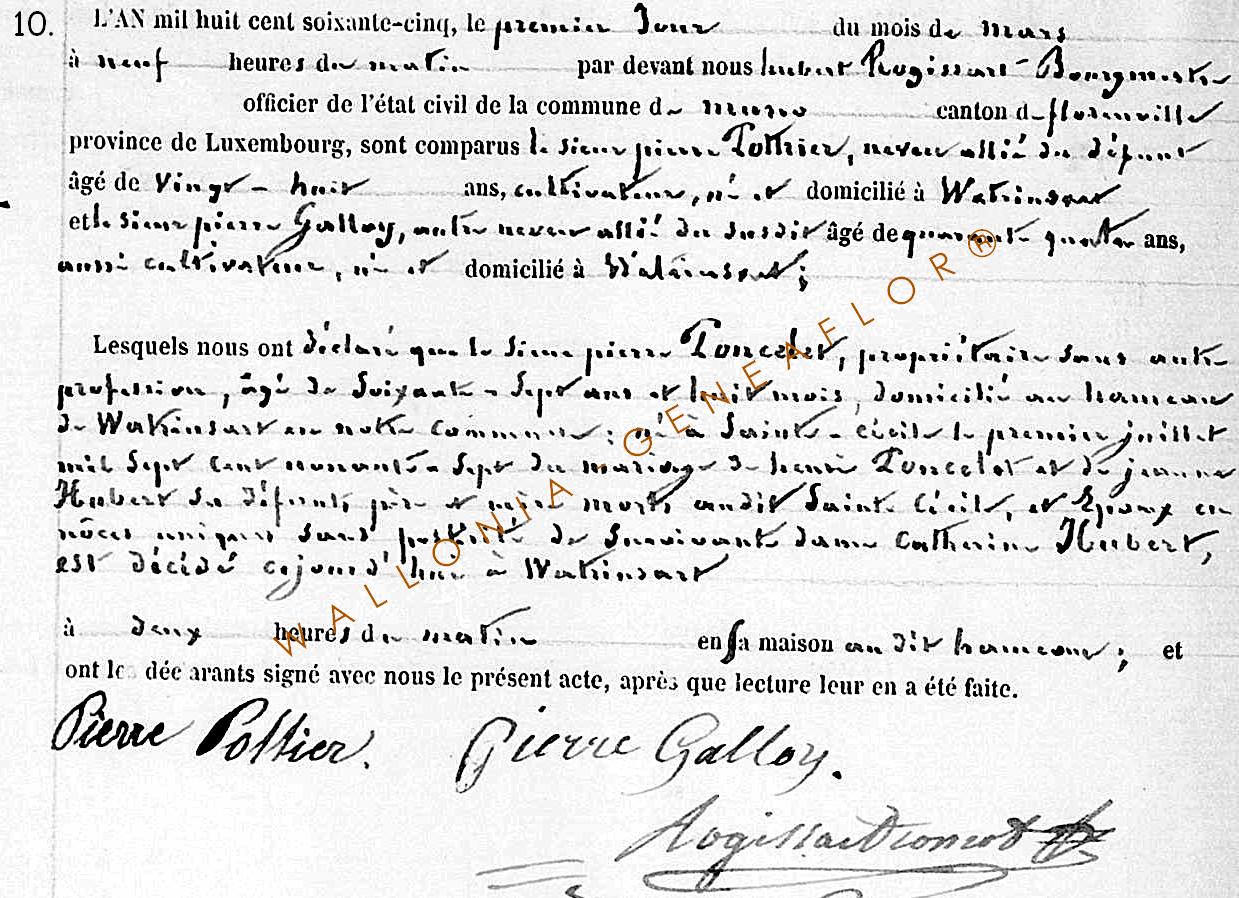 10. L'AN mil huit cent soixante-cinq, le premier Jour du mois de mars
à neuf heures du matin par devant nous hubert Rogissart Bourgmestre
officier de l'état civil de la commune de muno canton de florenville
province de Luxembourg, sont comparus le sieur pierre Pottier, neveu allié du défunt
âgé de Vingt-huit ans, cultivateur, né et domicilié à Watrinsart
et le sieur pierre Galloy, autre neveu allié du susdit âgé de quarante quatre ans,
aussi cultivateur, né et domicilié à Watrinsart;
Lesquels nous ont déclaré que le sieur pierre Poncelet, propriétaire sans autre
profession, âgé de Soixante-Sept ans et huit mois, domicilié au hameau
de Watrinsart en notre commune; né à Sainte-cécile le premier juillet
mil Sept Cent nonante-Sept du mariage de henri Poncelet et de jeanne
Hubert ses défunts père et mère morts audit Sainte Cécile, et Epoux en
nôces uniques Sans postérité de Survivante dame Catherine Hubert,
est décédé cejourd'hui à Watrinsart
à deux heures du matin en sa maison au dit hameau; et
ont les déclarants signé avec nous le présent acte, après que lecture leur en a été faite.
Pierre Pottier. Pierre Galloy.
WALLONIA-GENEAFLOR®